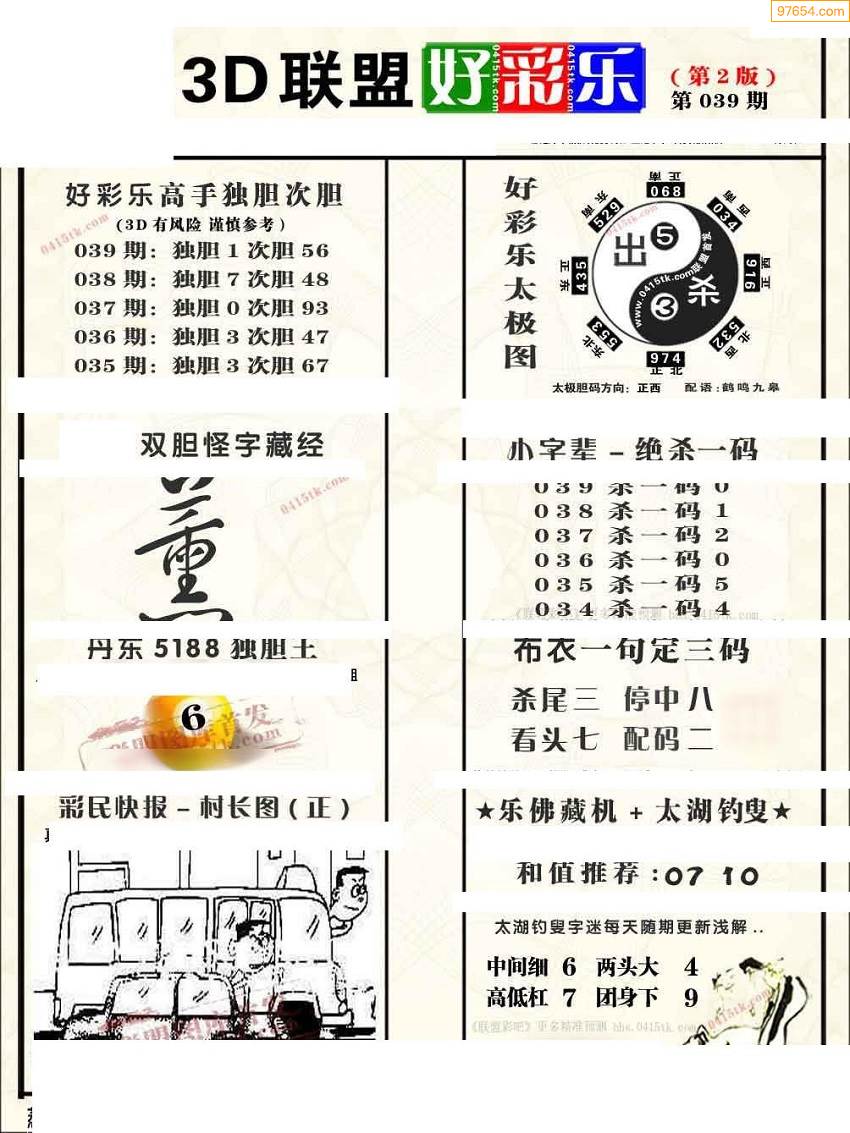 97654.com
3D 联盟 好彩乐
(第2版)
第 039 期
好彩乐高手独胆次胆
(3D 有风险 谨慎参考)
039 期: 独胆 1 次胆 56
038 期: 独胆 7 次胆 48
037 期: 独胆 0 次胆 93
036 期: 独胆 3 次胆 47
035 期: 独胆 3 次胆 67
0415tk.com
好彩乐太极图
正南
068
东南
529
西南
034
正东
435
正西
916
东北
553
西北
532
974
正北
出 5
3 杀
www.0415tk.com联盟首发
太极胆码方向: 正西 配语: 鹤鸣九皋
双胆怪字藏经
薰
0415tk.com
小字辈 – 绝杀一码
039 杀一码 0
038 杀一码 1
037 杀一码 2
036 杀一码 0
035 杀一码 5
034 杀一码 4
丹东 5188 独胆王
6
布衣一句定三码
杀尾三 停中八
看头七 配码二
彩民快报 – 村长图 (正)
★乐佛藏机 + 太湖钓叟★
和值推荐 :07 10
太湖钓叟字迷每天随期更新浅解 ..
中间细 6 两头大 4
高低杠 7 团身下 9
《联盟彩吧》更多精准预测 bbs.0415tk.com
0415tk.com